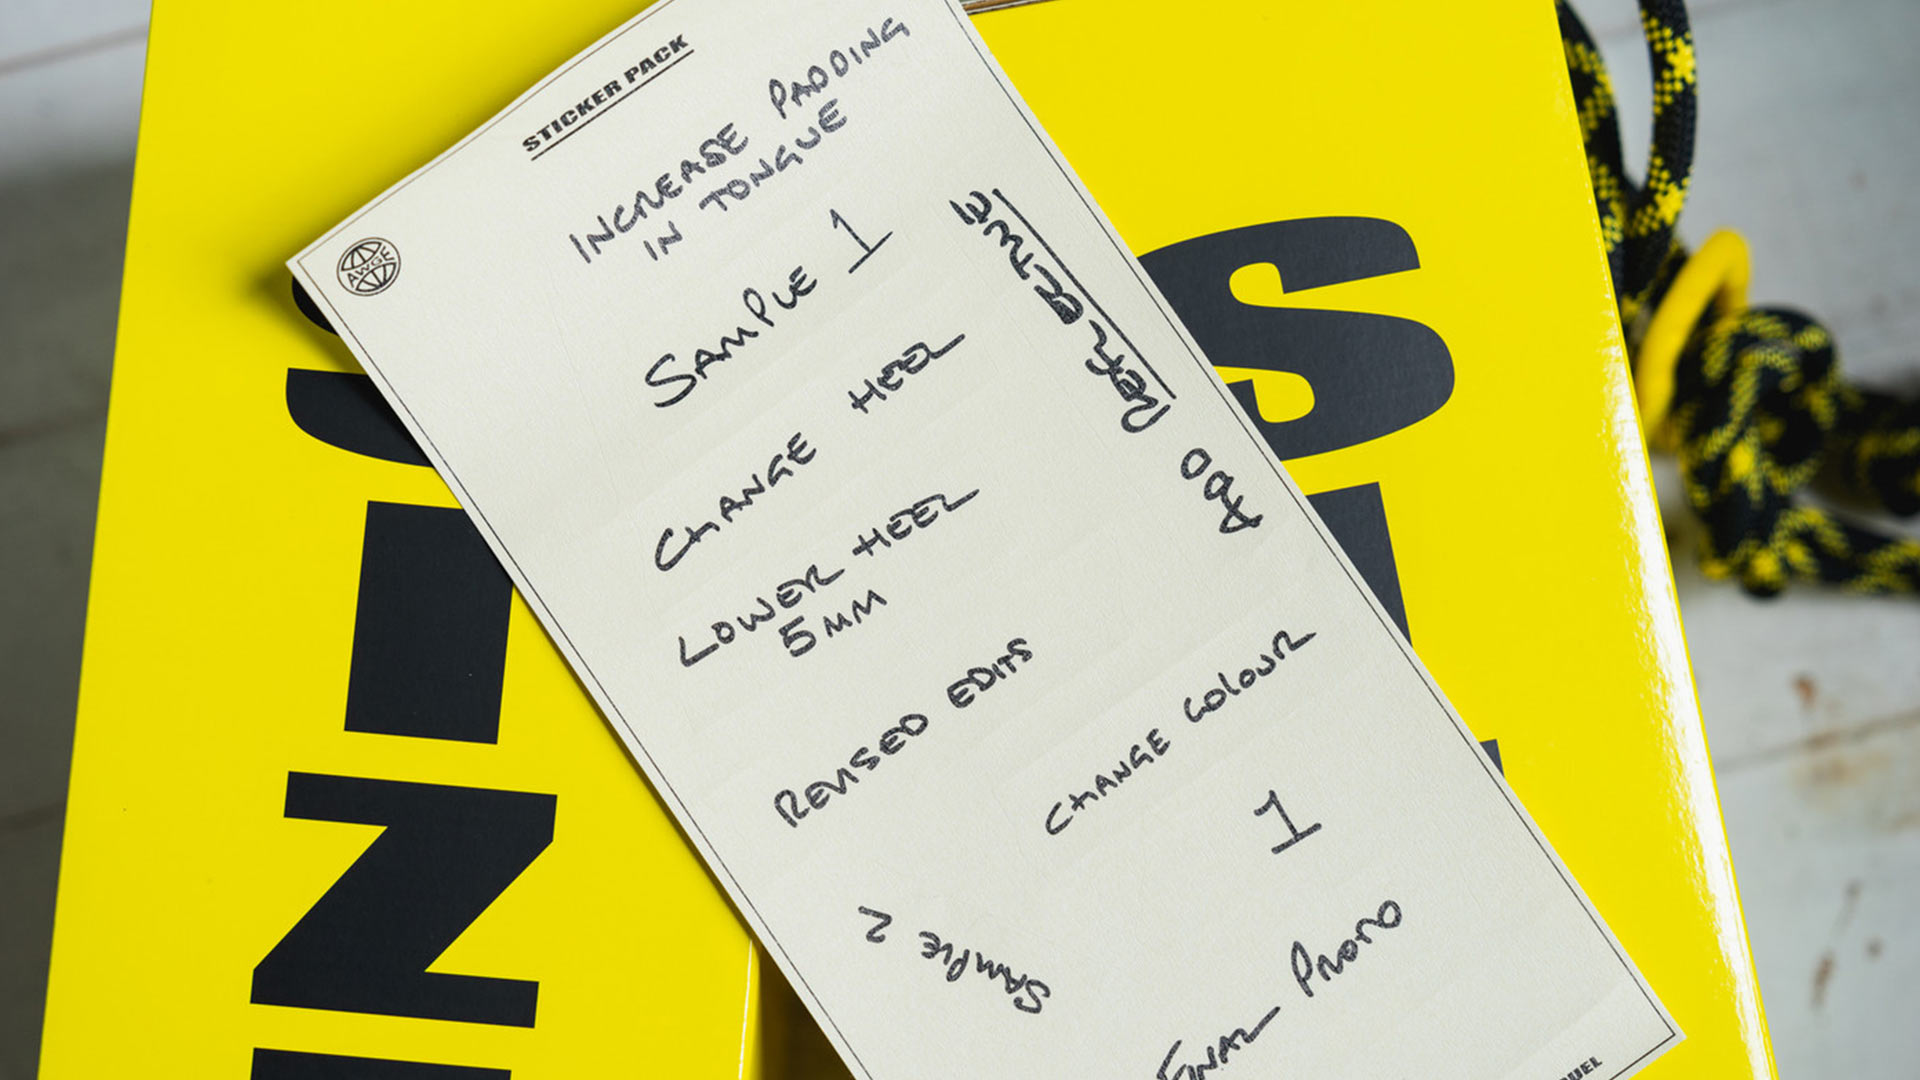 STICKER PACK
AWGE
INCREASE PADDING
IN TONGUE
SAMPLE 1
CHANGE HEEL
LOWER HEEL
5MM
REVISED EDITS
CHANGE COLOUR
1
SAMPLE 2
FINAL PROTO
ADD
S
N